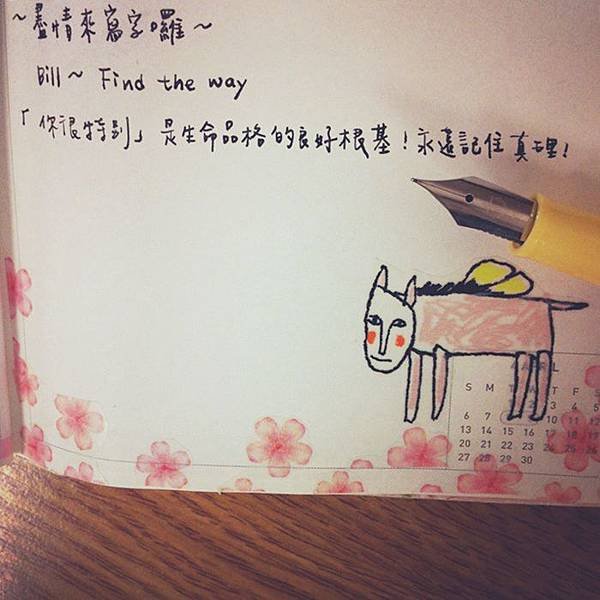 ～盡情來寫字囉～
Bill～ Find the way
「你很特別」是生命品格的良好根基！永遠記住真理！
APRIL
S M T T F S
3 4 5
6 7 10 11 12
13 14 15 16 17 18 19
20 21 22 23 24 25 26
27 28 29 30